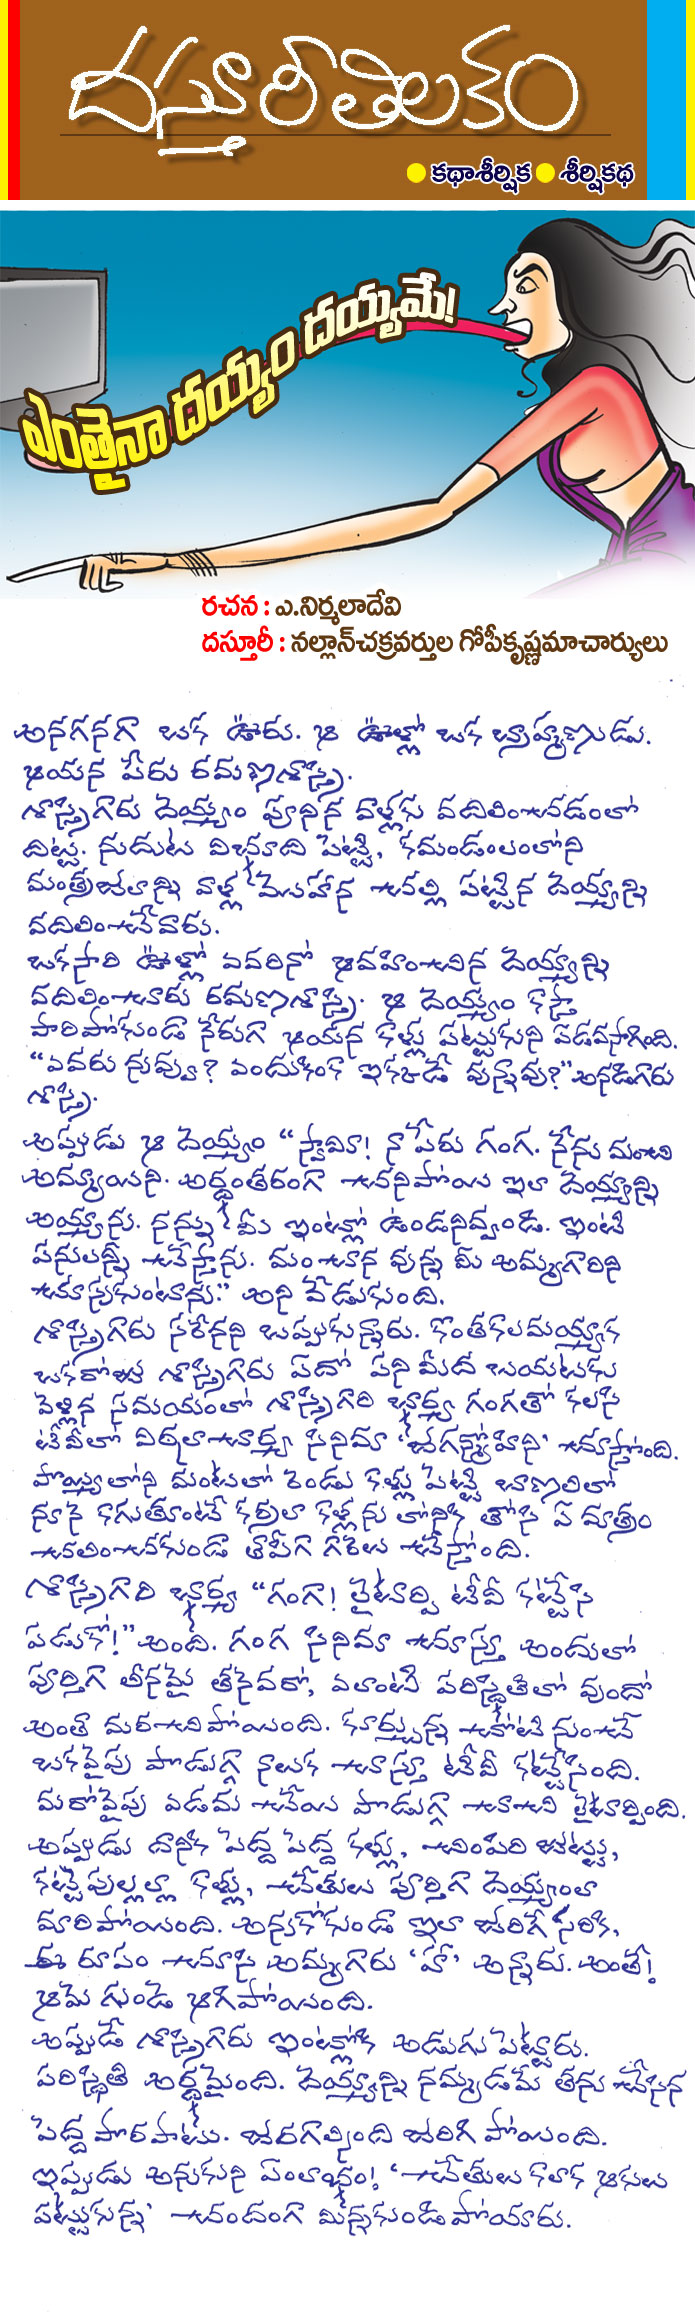 దస్తూరీ తిలకం
● కథాశీర్షిక ● శీర్షికథ
ఎంతైనా దయ్యం దయ్యమే!
రచన : ఎ.నిర్మలాదేవి
దస్తూరీ : నల్లాన్‌చక్రవర్తుల గోపీకృష్ణమాచార్యులు
అనగనగా ఒక ఊరు. ఆ ఊళ్లో ఒక బ్రాహ్మణుడు.
ఆయన పేరు రమణశాస్త్రి.
శాస్త్రిగారు దెయ్యం పూనిన వాళ్లకు వదిలించడంలో
దిట్ట. నుదుట విభూది పెట్టి, కమండలంలోని
మంత్రజలాన్ని వాళ్ల మొహాన చల్లి పట్టిన దెయ్యాన్ని
వదిలించేవారు.
ఒకసారి ఊళ్లో ఎవరినో ఆవహించిన దెయ్యాన్ని
వదిలించారు రమణశాస్త్రి. ఆ దెయ్యం కాస్తా
పారిపోకుండా నేరుగా ఆయన కాళ్లు పట్టుకుని ఏడవసాగింది.
“ఎవరు నువ్వు? ఎందుకింకా ఇక్కడే వున్నావు?” అనడిగారు
శాస్త్రి.
అప్పుడు ఆ దెయ్యం “స్వామీ! నా పేరు గంగ. నేను మంచి
అమ్మాయిని. అర్ధంతరంగా చనిపోయి ఇలా దెయ్యాన్ని
అయ్యాను. నన్ను మీ ఇంట్లో ఉండనివ్వండి. ఇంటి
పనులన్నీ చేస్తాను. మంచాన వున్న మీ అమ్మగారిని
చూస్కుంటాను.” అని వేడుకుంది.
శాస్త్రిగారు సరేనని ఒప్పుకున్నారు. కొంతకాలమయ్యాక
ఒకరోజు శాస్త్రిగారు ఏదో పని మీద బయటకు
వెళ్లిన సమయంలో శాస్త్రిగారి భార్య గంగతో కలసి
టీవీలో విఠలాచార్య సినిమా ‘జగన్మోహిని’ చూస్తోంది.
పొయ్యిలోని మంటలో రెండు కాళ్లు పెట్టి బాణలిలో
నూనె కాగుతూంటే కర్రలా కాళ్లను లోనికి తోసి ఏ మాత్రం
చలించకుండా తాపీగా గారెలు చేస్తోంది.
శాస్త్రిగారి భార్య “గంగా! లైటార్పి టీవీ కట్టేసి
పడుకో!” అంది. గంగ సినిమా చూస్తూ అందులో
పూర్తిగా లీనమై తనెవరో, ఎలాంటి పరిస్థితిలో వుందో
అంతా మరచిపోయింది. కూర్చున్న చోటి నుంచే
ఒకవైపు పొడుగ్గా నాలుక చాస్తూ టీవీ కట్టేసింది.
మరోవైపు ఎడమ చేయి పొడుగ్గా చాచి లైటార్పింది.
అప్పుడు దానికి పెద్ద పెద్ద కళ్లు, చింపిరి జుట్టు,
కట్టెపుల్లల్లా కాళ్లు, చేతులు పూర్తిగా దెయ్యంలా
మారిపోయింది. అనుకోకుండా ఇలా జరిగే సరికి,
ఈ రూపం చూసి అమ్మగారు ‘హా’ అన్నారు. అంతే!
ఆమె గుండె ఆగిపోయింది.
అప్పుడే శాస్త్రిగారు ఇంట్లోకి అడుగు పెట్టారు.
పరిస్థితి అర్థమైంది. దెయ్యాన్ని నమ్మడమే తను చేసిన
పెద్ద పొరపాటు. జరగాల్సింది జరిగి పోయింది.
ఇప్పుడు అనుకుని ఏంలాభం! ‘చేతులు కాలాక ఆకులు
పట్టుకున్న’ చందంగా మిన్నకుండి పోయారు.